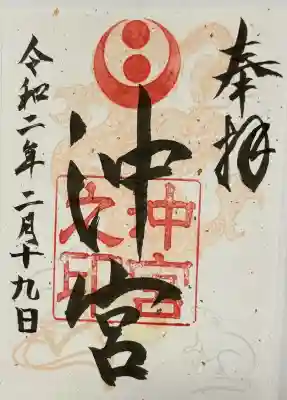 奉拝
沖宮
沖宮之印
令和二年二月十九日